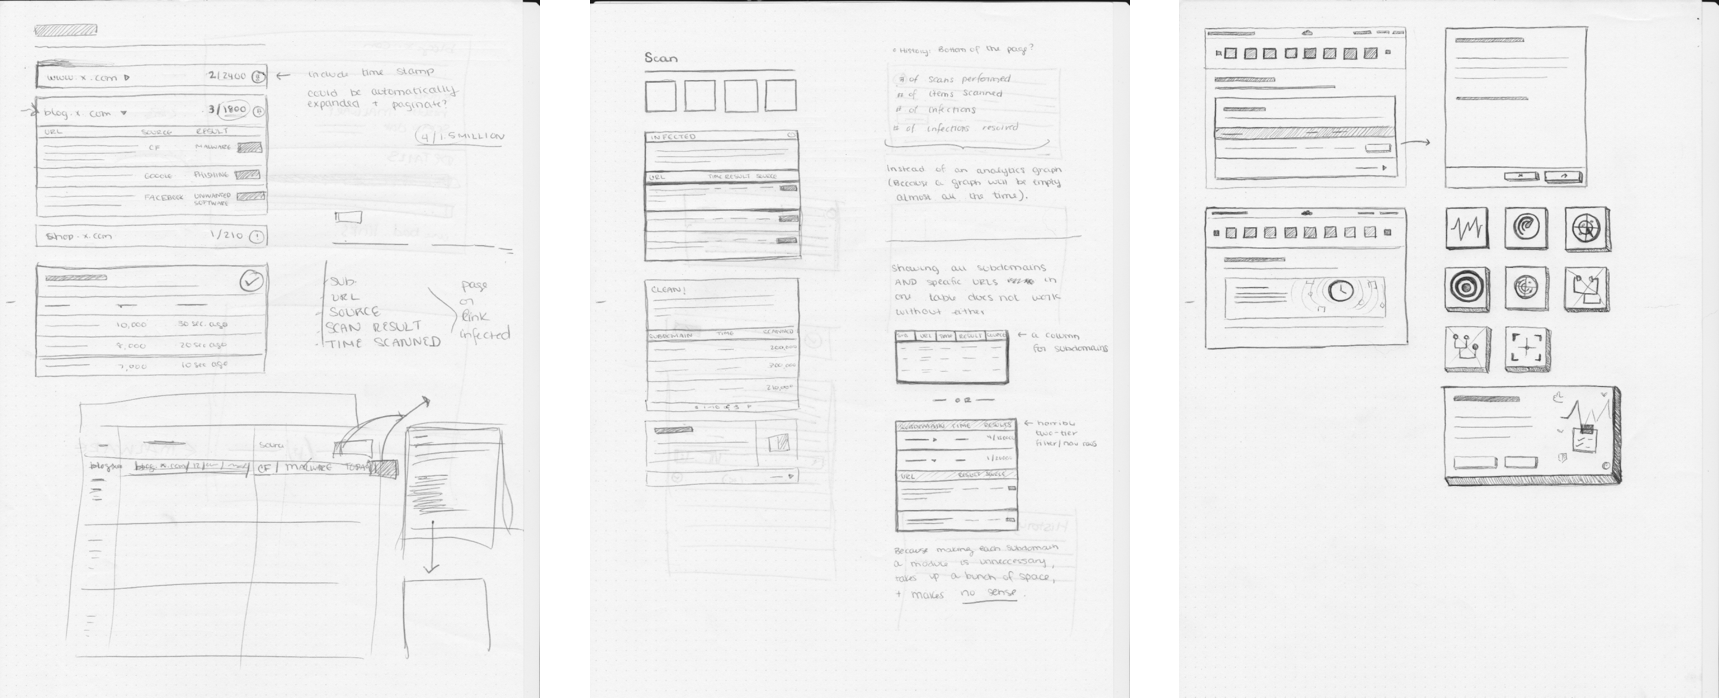 www.x.com
2/2400
include time stamp
could be automatically
expanded + paginate?
blog.x.com
3/1800
4/1.5 MILLION
URL SOURCE RESULT
CF MALWARE
GOOGLE PHISHING
FACEBOOK UNWANTED
SOFTWARE
shop.x.com
1/210
10,000 30 sec. ago
8,000 20 sec ago
7,000 10 sec ago
SUB.
URL
SOURCE
SCAN RESULT
TIME SCANNED
page
or
link
infected
CF / MALWARE
Scan
INFECTED
URL TIME RESULT SOURCE
CLEAN!
SUBDOMAIN TIME SCANNED
200,000
200,000
1-10 of 3
History: Bottom of the page?
# of scans performed
# of items scanned
# of infections
# of infections resolved
Instead of an analytics graph
(Because a graph will be empty
almost all the time).
Showing all subdomains
AND specific URLs in
one table does not work
without either
SUB URL TIME RESULT SOURCE
a column
for subdomains
OR
SUBDOMAIN TIME RESULTS
URL RESULT SOURCE
two-tier
Because making each subdomain
a module is unnecessary,
takes up a bunch of space,
+ makes no sense.